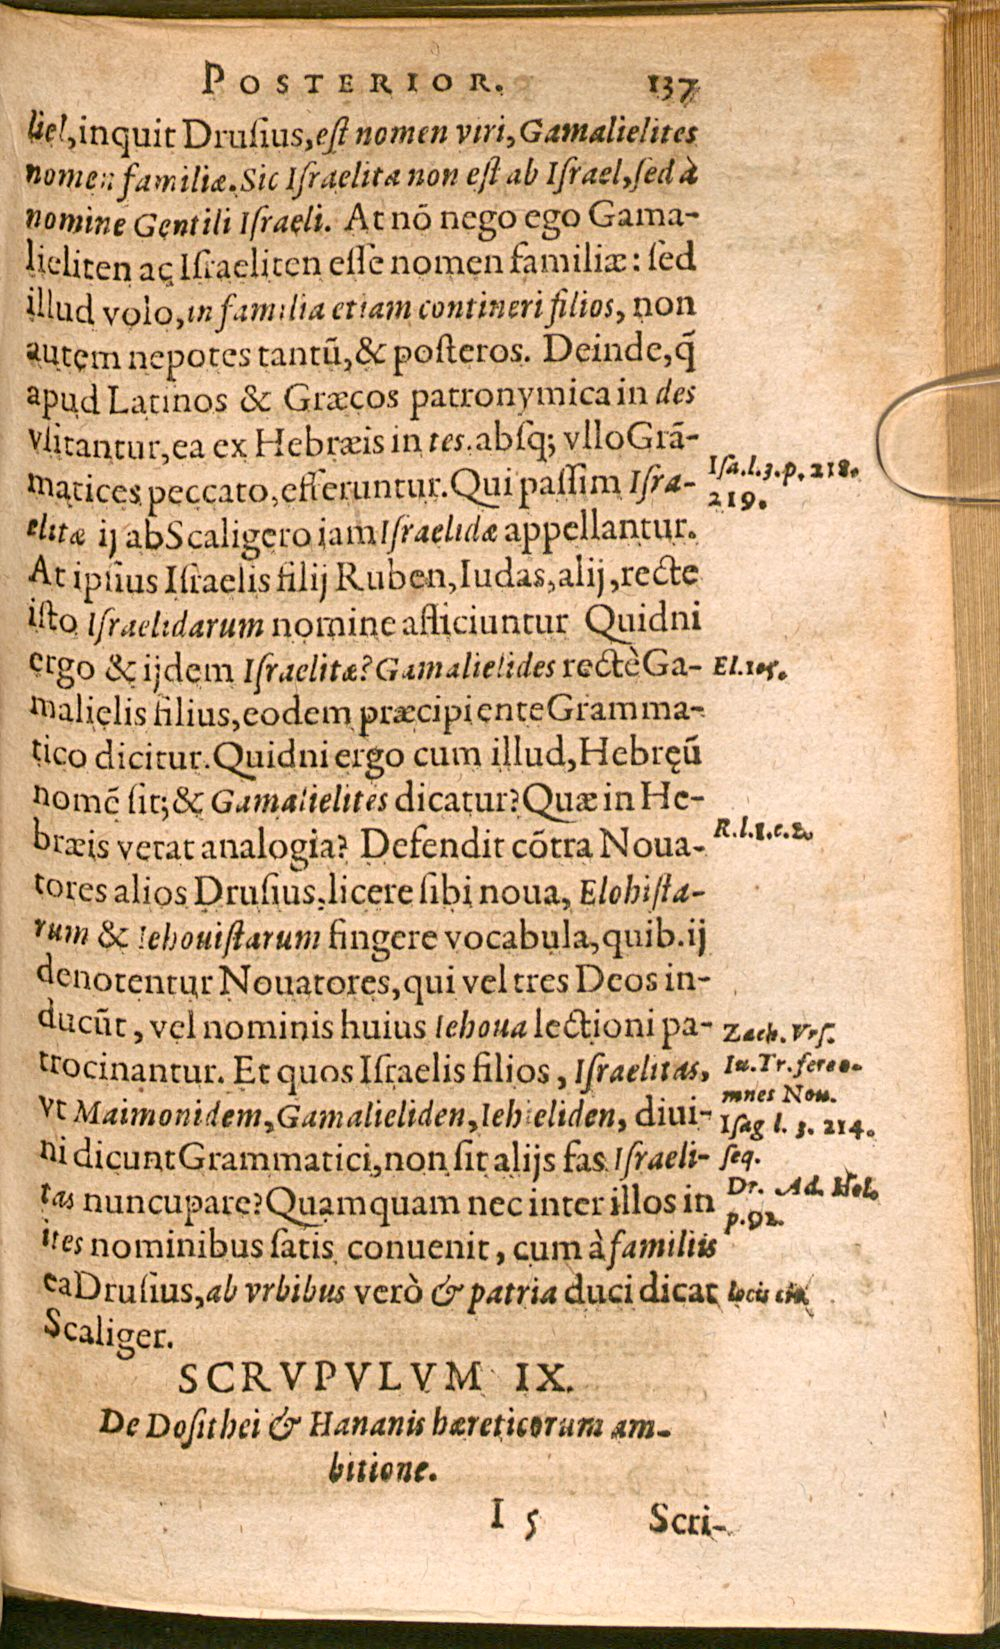 POSTERIOR. 137
liel, inquit Druſius, eſt nomen viri, Gamalielites
nomen familiæ. Sic Iſraelita non eſt ab Iſrael, ſed à
nomine Gentili Iſraeli. At nõ nego ego Gama-
lieliten ac Iſraeliten eſſe nomen familiæ: ſed
illud volo, in familia etiam contineri filios, non
autem nepotes tantũ, & poſteros. Deinde, q̃
apud Latinos & Græcos patronymica in des
vſitantur, ea ex Hebræis in tes. abſq; vllo Grã-
matices peccato, efferuntur. Qui paſſim Iſra-
Iſa. l. 3. p. 218.
219.
elitæ ij ab Scaligero iam Iſraelidæ appellantur.
At ipſius Iſraelis filij Ruben, Iudas, alij, recte
iſto Iſraelidarum nomine afficiuntur Quidni
ergo & ijdem Iſraelitæ? Gamalielides rectè Ga-
El. 105.
malielis filius, eodem præcipiente Gramma-
tico dicitur. Quidni ergo cum illud, Hebręũ
nomẽ ſit; & Gamalielites dicatur? Quæ in He-
bræis vetat analogia? Defendit cõtra Noua-
R. l. 1. c. 2.
tores alios Druſius, licere ſibi noua, Elohiſta-
rum & Iehouiſtarum fingere vocabula, quib. ij
denotentur Nouatores, qui vel tres Deos in-
ducũt, vel nominis huius Iehoua lectioni pa-
Zach. Vrſ.
trocinantur. Et quos Iſraelis filios, Iſraelitas,
Iu. Tr. fere o-
mnes Nou.
vt Maimonidem, Gamalieliden, Iehieliden, diui-
Iſag l. 3. 214.
ni dicunt Grammatici, non ſit alijs fas Iſraeli-
ſeq.
tas nuncupare? Quamquam nec inter illos in
Dr. Ad. Hel.
p. 92.
ites nominibus ſatis conuenit, cum à familiis
ea Druſius, ab vrbibus verò & patria duci dicat
locis
Scaliger.
SCRVPVLVM IX.
De Doſithei & Hananis hæreticorum am-
bitione.
I 5 Scri-